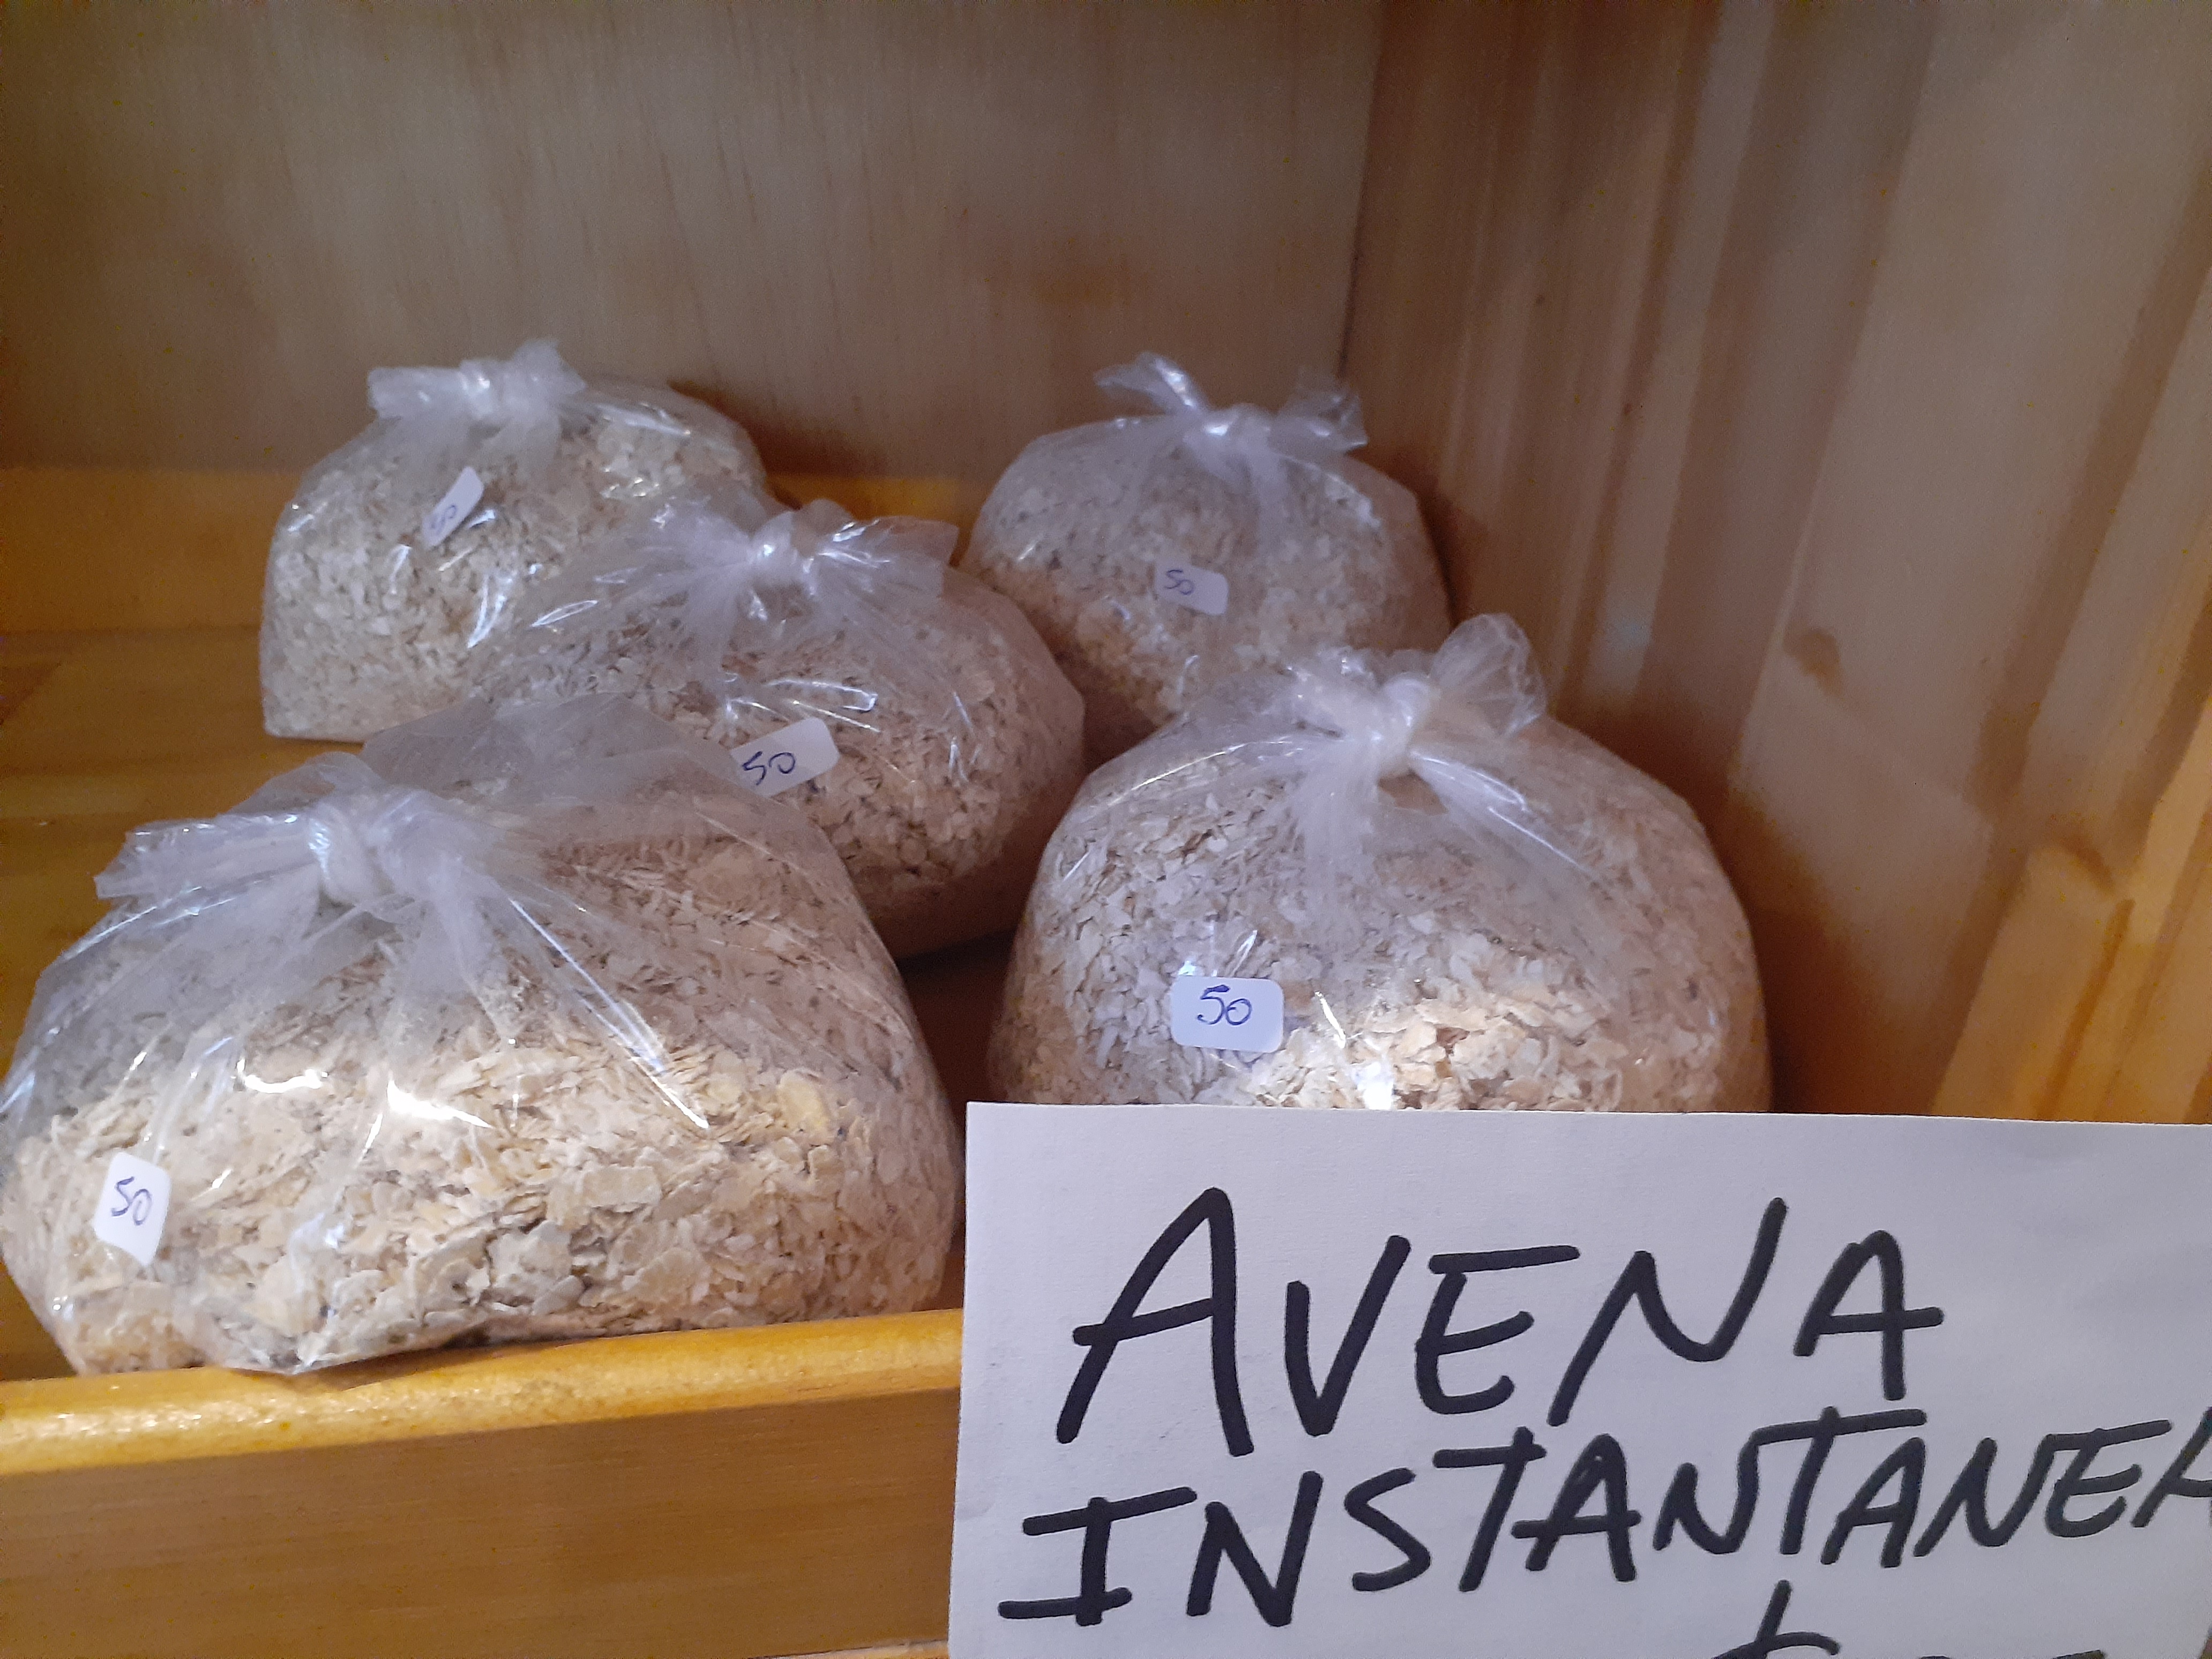 50
50
50
50
50
AVENA
INSTANTANEA